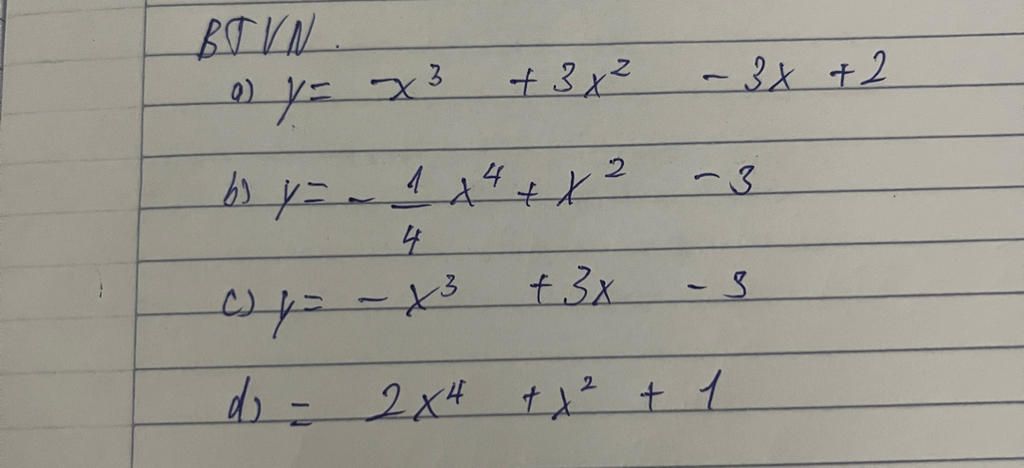 BTVN.
a) y = -x³ + 3x² - 3x + 2
b) y = - 1/4 x⁴ + x² - 3
c) y = - x³ + 3x - 3
d) = 2x⁴ + x² + 1